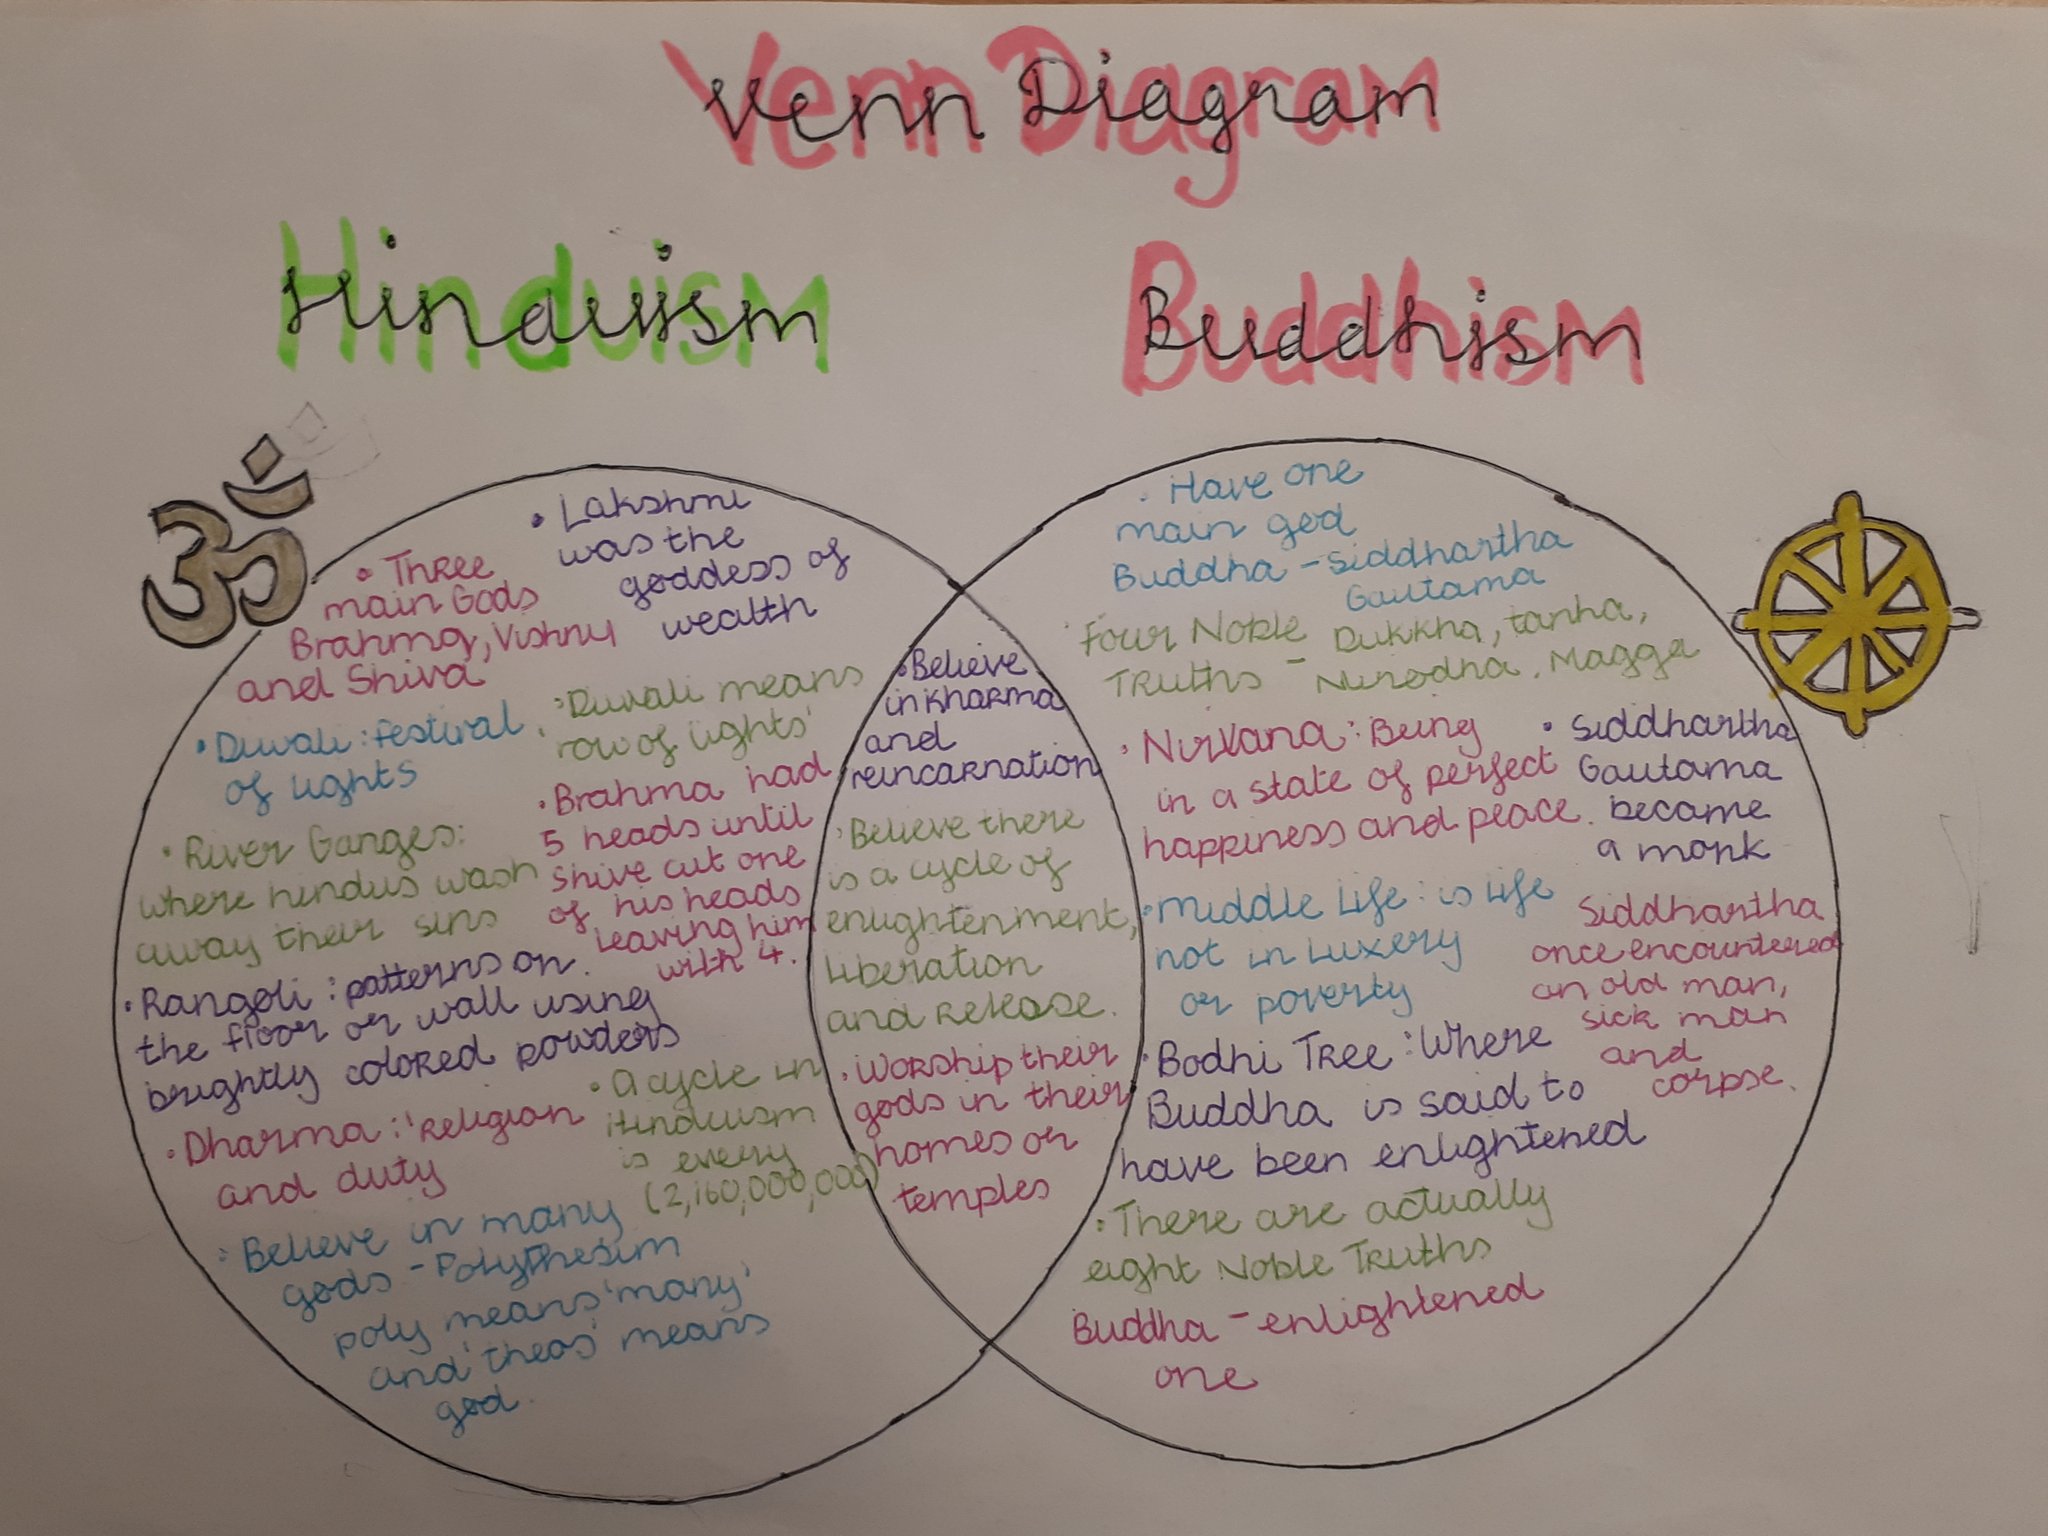 Venn Diagram
Hinduism
Buddhism
• Lakshmi
was the
goddess of
wealth
• Three
main Gods
Brahma, Vishnu
and Shiva
• Diwali : festival
of lights
• Diwali means
'row of lights'
• Brahma had
5 heads until
Shive cut one
of his heads
leaving him
with 4.
• River Ganges:
where hindus wash
away their sins
• Rangoli : patterns on
the floor or wall using
brightly colored powders
• Dharma : 'religion
and duty
• A cycle in
Hinduism
is every
(2,160,000,000)
• Believe in many
gods - Polythesim
poly means 'many'
and 'theos' means
god.
• Believe
in kharma
and
reincarnation
• Believe there
is a cycle of
enlightenment,
liberation
and release.
• Worship their
gods in their
homes or
temples
• Have one
main god
Buddha - Siddhartha
Gautama
• Four Noble
Truths - Dukkha, tanha,
Nirodha, Magga
• Nirvana : Being
in a state of perfect
happiness and peace.
• Siddhartha
Gautama
became
a monk
• Middle Life : is life
not in luxery
or poverty
Siddhartha
once encountered
an old man,
sick man
and
corpse.
• Bodhi Tree : Where
Buddha is said to
have been enlightened
• There are actually
eight Noble Truths
Buddha - enlightened
one